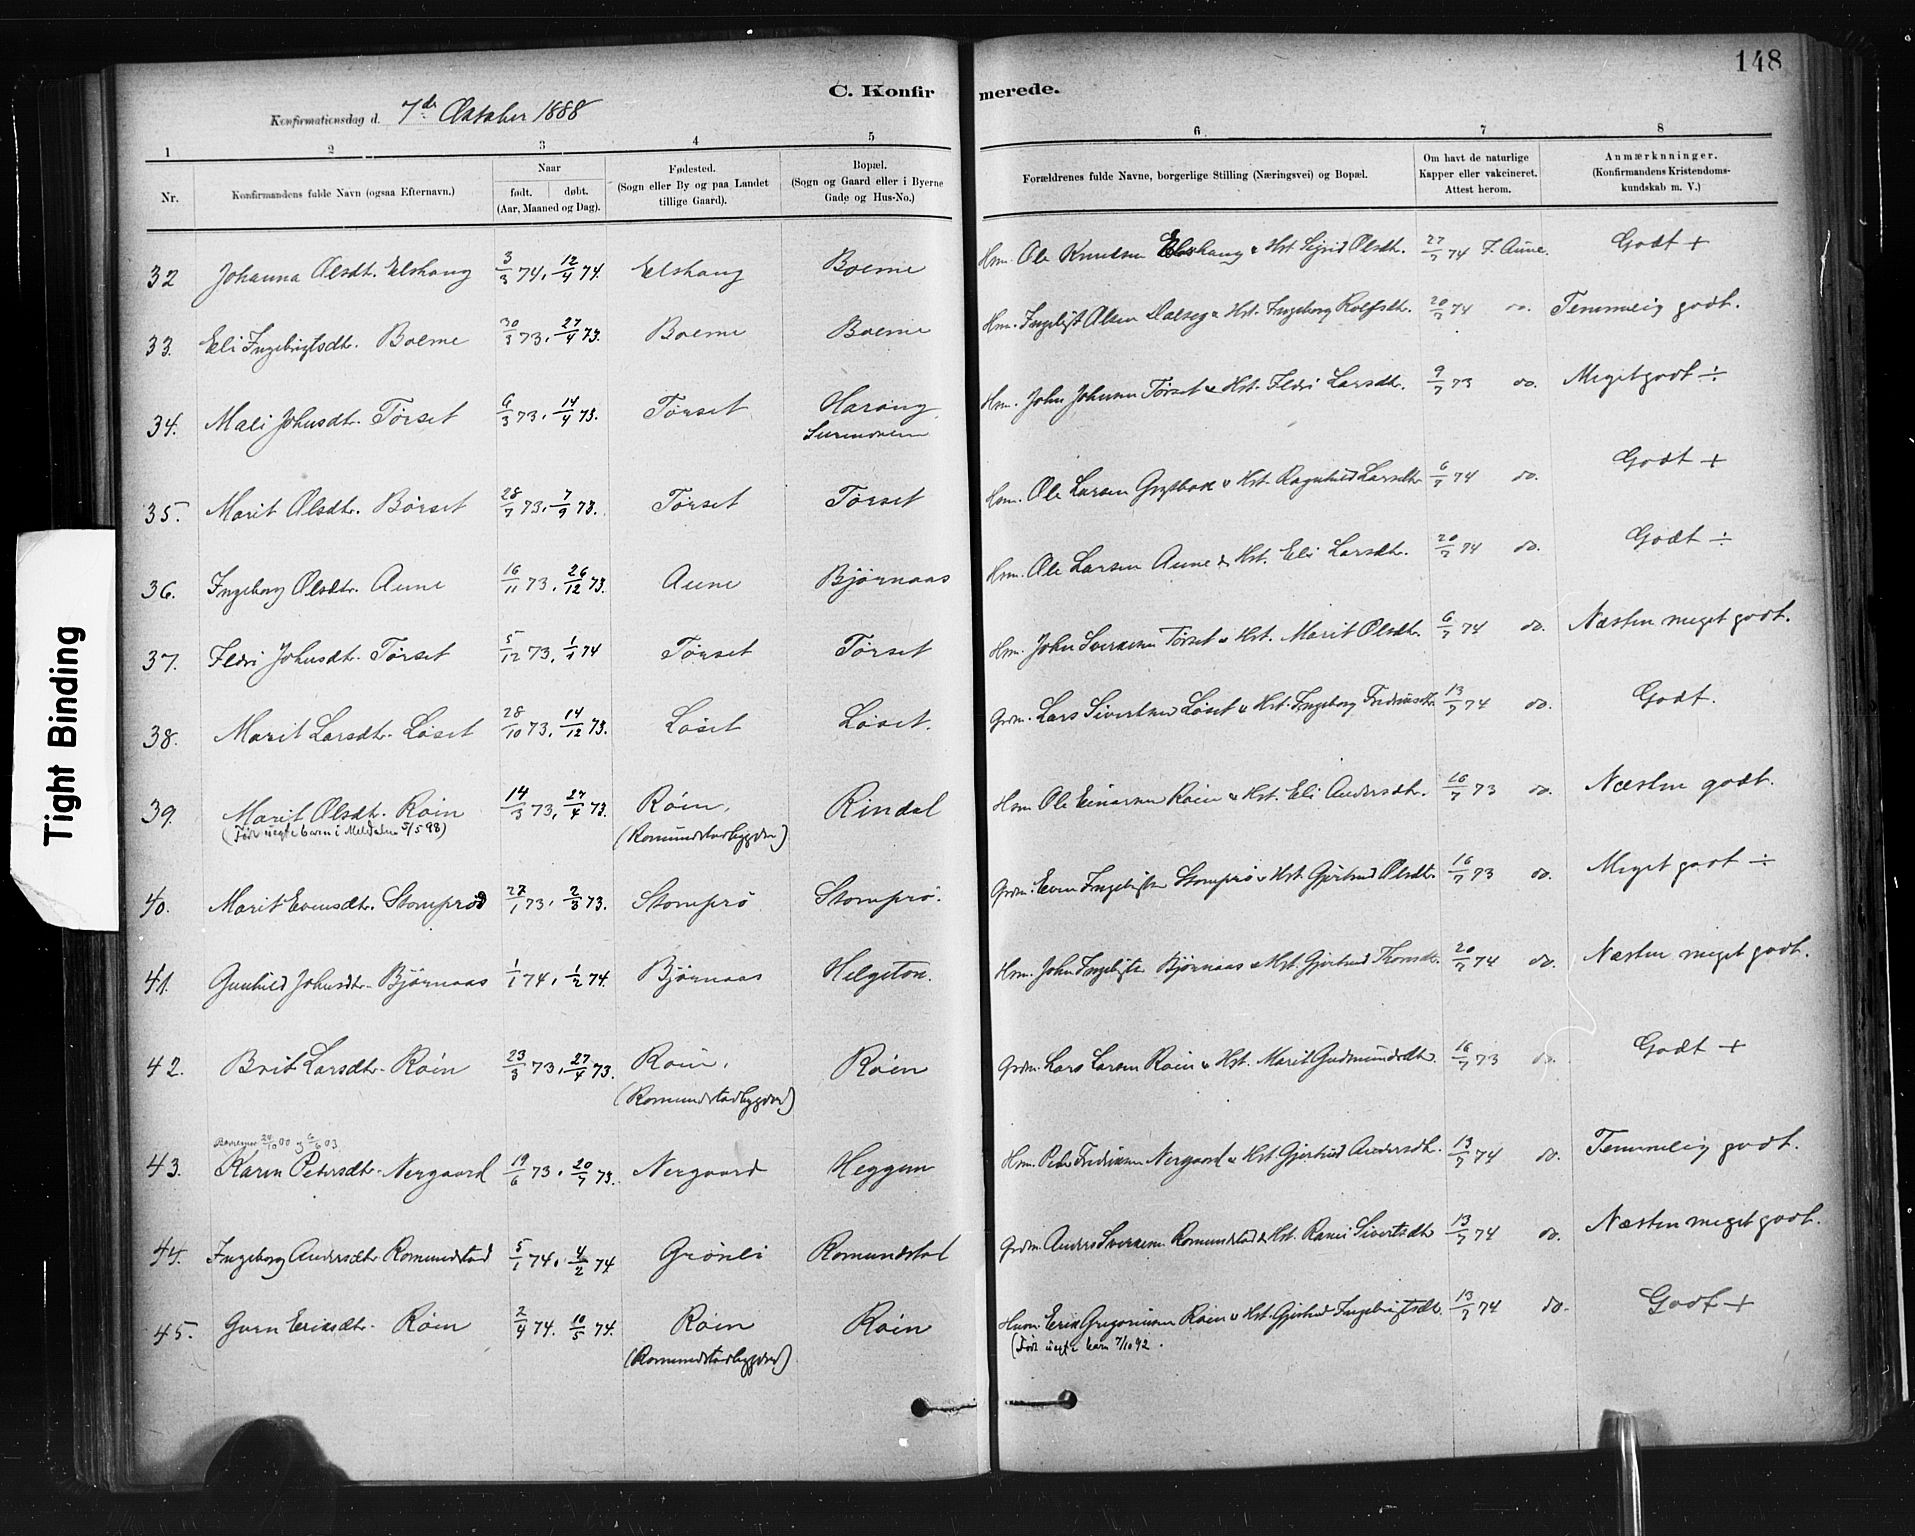 148
C. Konfirmerede.
Konfirmationsdag d. 7de Oktober 1888
1 2 3 4 5 6 7 8
Nr. Konfirmandens fulde Navn (ogsaa Efternavn.) Naar født. døbt. (Aar, Maaned og Dag). Fødested. (Sogn eller By og paa Landet tillige Gaard). Bopæl. (Sogn og Gaard eller i Byerne Gade og Hus-No.) Forældrenes fulde Navne, borgerlige Stilling (Næringsvei) og Bopæl. Om havt de naturlige Kapper eller vakcineret. Attest herom. Anmærknninger. (Konfirmandens Kristendomskundskab m. V.)
32 Johanna Olsdt. Elshaug 3/3 74. 12/4 74. Elshaug Boeme Hm. Ole Knudsen Elshaug & Hst. Sigrid Olsdt. 27/7 74 F. Aune. Godt +
33. Eli Ingebrigtsdt. Boeme 30/3 73. 27/4 73. Boeme Boeme Hm. Ingebrigt Olsen Dalseg & Hst. Ingeborg Rolfsdt. 20/7 74 do. Temmelig godt.
34. Mali Johnsdt. Tørset 6/3 73. 14/4 73. Tørset Harang Surendalen Hm. John Johnsen Tørset & Hst. Fledri Larsdt. 9/7 73 do. Meget godt ÷
35. Marit Olsdt. Børset 28/7 73. 7/9 73. Tørset Tørset Hm. Ole Larsen & Hst. Ragnhild Larsdt. 6/7 74 do. Godt +
36. Ingeborg Olsdt. Aune 16/11 73. 26/12 73. Aune Bjørnaas Hm. Ole Larsen Aune & Hst. Eli Larsdt. 20/7 74 do. Godt ÷
37. Fledri Johnsdt. Tørset 5/12 73. 1/1 74 Tørset Tørset Hm. John Sivertsen Tørset & Hst. Marit Olsdt. 6/7 74 do. Næsten meget godt.
38. Marit Larsdt. Løset 28/10 73. 14/12 73. Løset Løset. Grdm. Lars Sivertsen Løset & Hst. Ingeborg Fredriksdt. 13/7 74 do. Godt.
39. Marit Olsdt. Røin 14/3 73. 27/4 73. Røin, Rindal Hm. Ole Einarsen Røin & Hst. Eli Andersdt. 16/7 73 do. Næsten godt.
(Født uegte barn i Meldalen 5/5 98) (Romundstadbygden)
40. Marit Evensdt. Stomprød 27/1 73. 2/3 73. Stomprø Stomprø. Grdm. Even Ingebrigtsen Stomprø & Hst. Gjertrud Olsdt. 16/7 73 do. Meget godt ÷
41. Gunhild Johnsdt. Bjørnaas 1/1 74. 1/2 74. Bjørnaas Helgeton. Hm. John Ingebrigtsen Bjørnaas & Hst. Gjertrud Thomsdt. 20/7 74 do. Næsten meget godt.
42. Brit Larsdt. Røin 23/3 73. 27/4 73. Røin, Røin Grdm. Lars Larsen Røin & Hst. Marit Gudmundsdt. 16/7 73 do. Godt +
(Romundstadbygden)
20/10 00 6/6 03
43. Karen Petersdt. Nergaard 19/6 73. 20/7 73. Nergaard Heggem Hm. Peder Fredriksen Nergaard & Hst. Gjertrud Andersdt. 13/7 74 do. Temmelig godt.
44. Ingeborg Andersdt. Romundstad 5/1 74. 4/2 74. Grønli Romundstad Grdm. Anders Sivertsen Romundstad & Hst. Rannei Sivertsdt. 13/7 74 do. Næsten meget godt.
45. Guru Eriksdt. Røin 2/4 74. 10/5 74. Røin Røin Husm. Erik Gregoriusen Røin & Hst. Gjertrud Ingebrigtsdt. 13/7 74 do. Godt +
(Romundstadbygden) (Født uegte barn 7/10 92.
Tight Binding